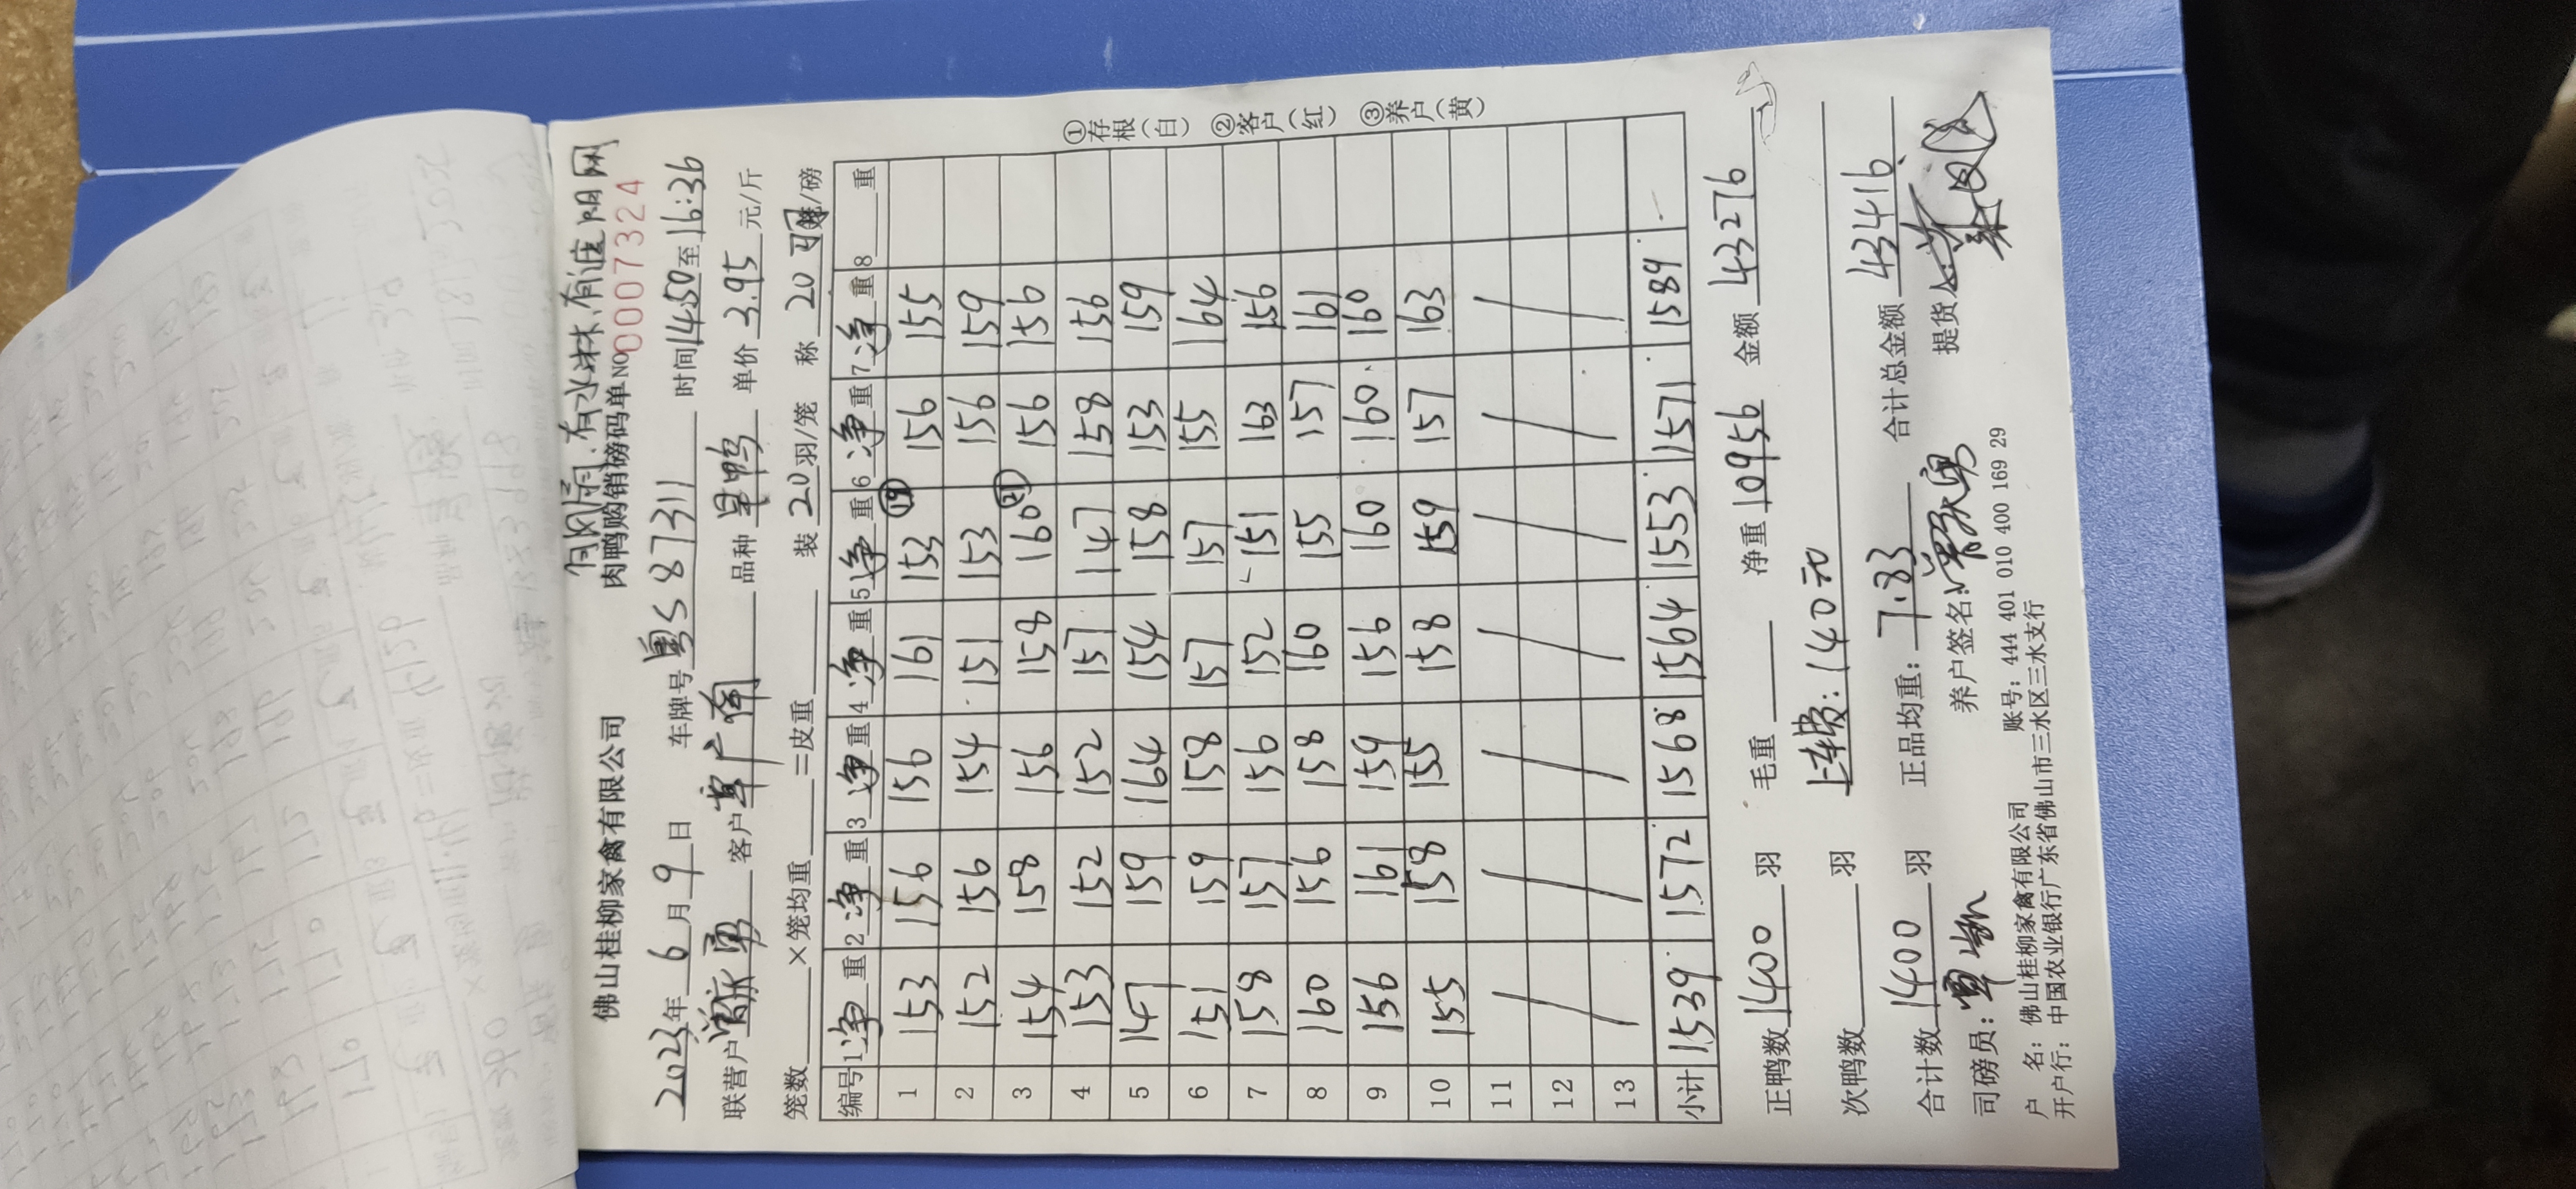 有风雨.有水淋.有遮阴网
佛山桂柳家禽有限公司 肉鸭购销磅码单 NO 0007324
2023年 6 月 9 日 车牌号 粤S 87311 时间 14:50 至 16:36
联营户 客户 覃广南 品种 旱鸭 单价 3.95 元/斤
笼数 ×笼均重 =皮重 装 20 羽/笼 称 20 /磅
编号 1 净 重 2 净 重 3 净 重 4 净 重 5 净 重 6 净 重 7 净 重 8 重
1 153 156 156 161 153 19 156 155
2 152 156 154 151 153 156 159
3 154 158 156 158 160 21 156 156
4 153 152 152 157 147 158 156
5 147 159 164 154 158 153 159
6 151 159 158 157 157 155 164
7 158 157 156 152 151 163 156
8 160 156 158 160 155 157 161
9 156 161 159 156 160 160 160
10 155 158 155 158 159 157 163
11 / / / / / / /
12
13
小计 1539 1572 1568 1564 1553 1571 1589
①存根(白) ②客户(红) ③养户(黄)
正鸭数 1400 羽 毛重 净重 10956 金额 43276
次鸭数 羽 上车费: 140元
合计数 1400 羽 正品均重: 7.83 合计总金额 43416
司磅员: 养户签名: 提货人:
户 名: 佛山桂柳家禽有限公司 账号: 444 401 010 400 169 29
开户行: 中国农业银行广东省佛山市三水区三水支行